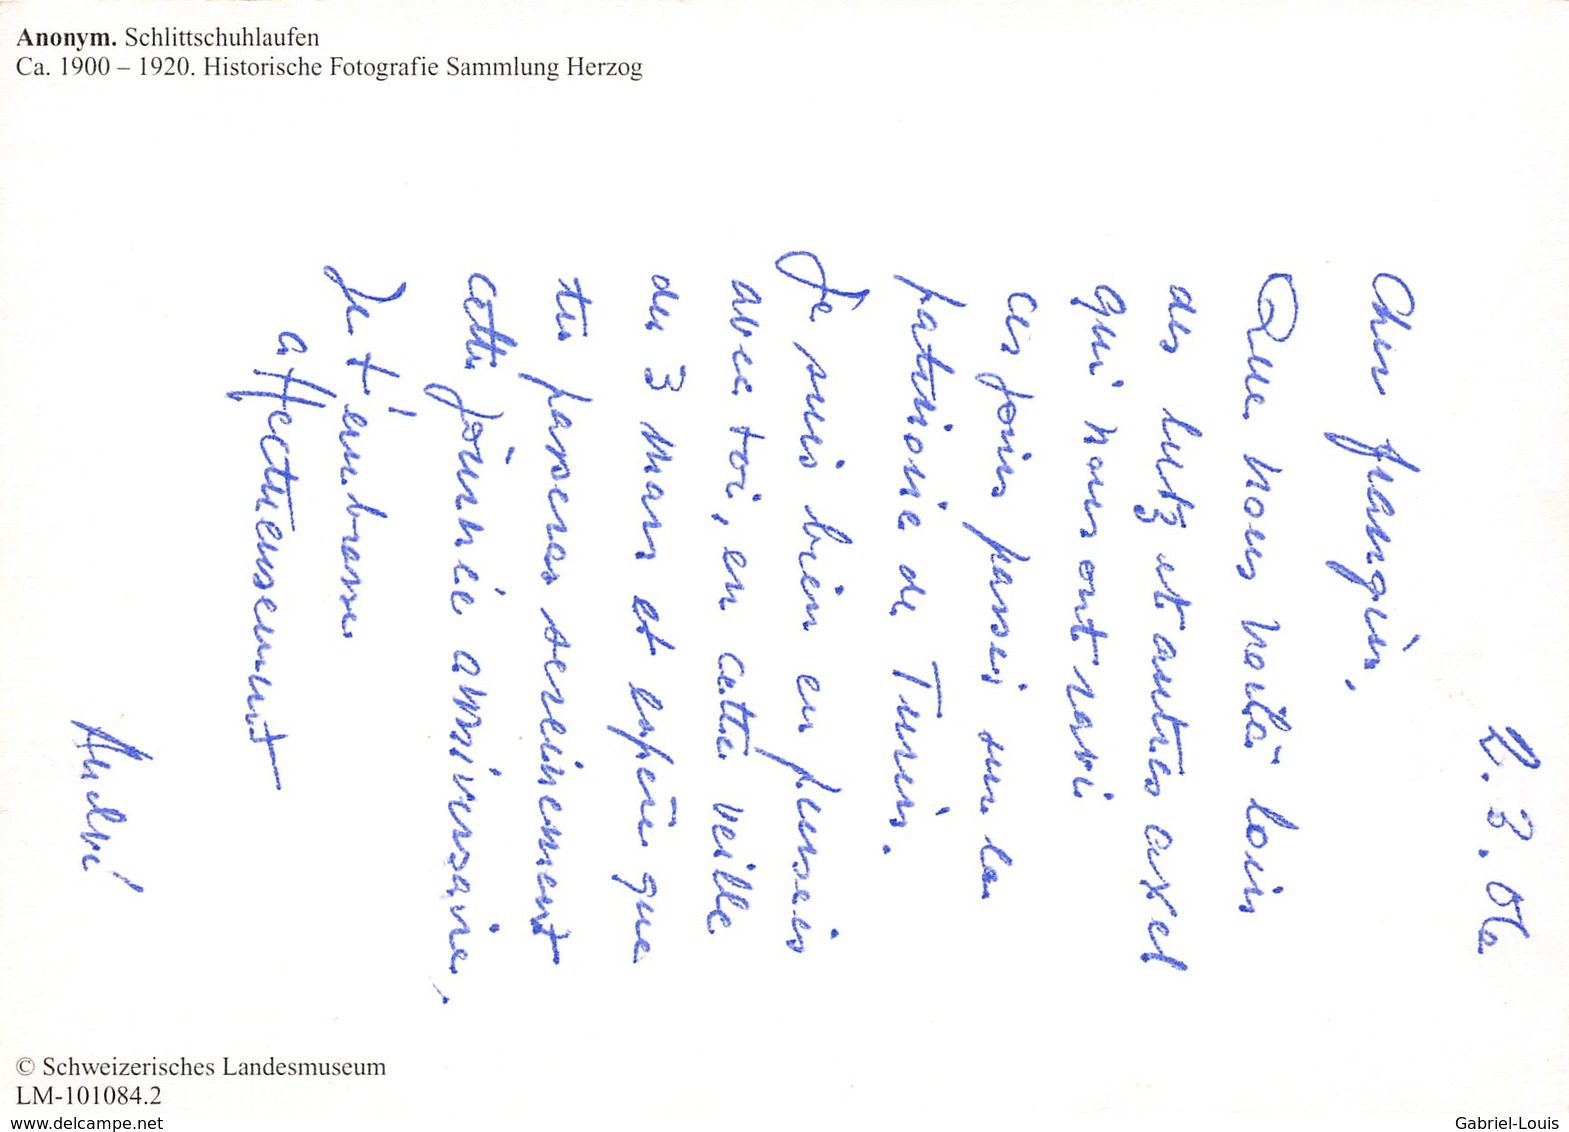 Anonym. Schlittschuhlaufen
Ca. 1900 – 1920. Historische Fotografie Sammlung Herzog
2.3.06.
Cher frangin,
Que nous voilà loin
des lutz et autres axel
qui nous ont ravi
ces jours passés sur la
patinoire de Turin.
Je suis bien en pensées
avec toi, en cette veille
du 3 mars et espère que
tu passeras sereinement
cette journée anniversaire,
Je t'embrasse
affectueusement
© Schweizerisches Landesmuseum
LM-101084.2
www.delcampe.net
Gabriel-Louis